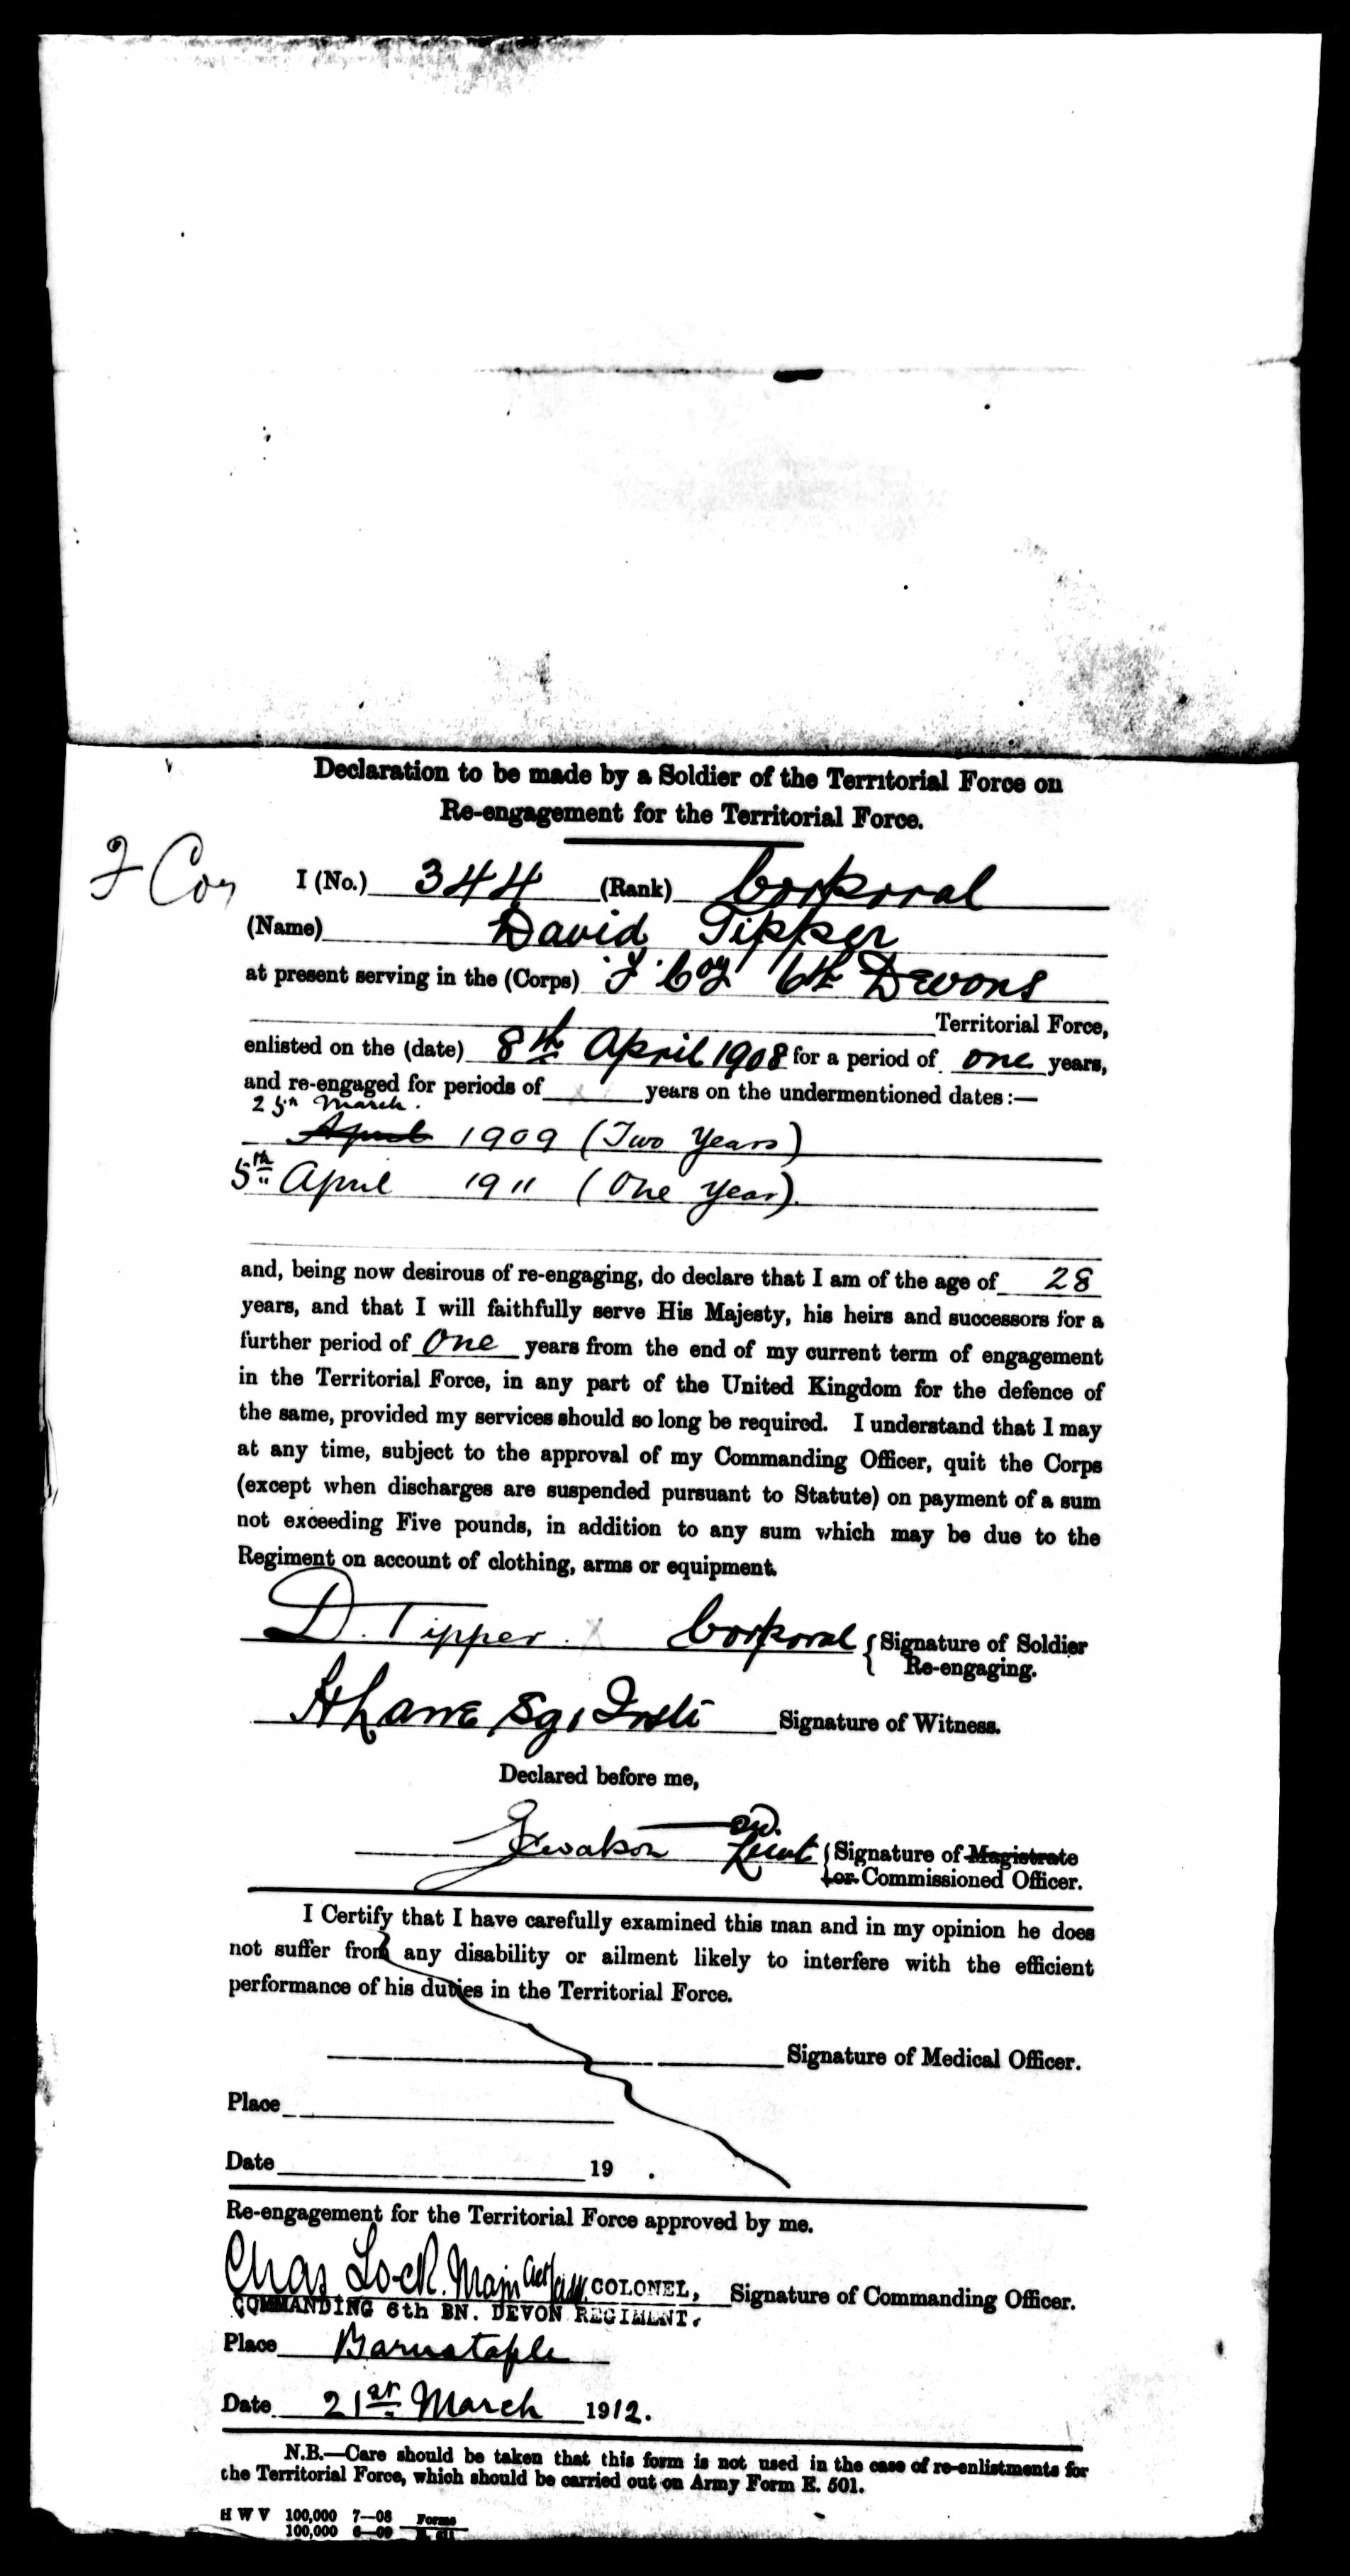 Declaration to be made by a Soldier of the Territorial Force on
Re-engagement for the Territorial Force.
F Coy
I (No.) 344 (Rank) Corporal
(Name) David Tipper
at present serving in the (Corps) "F" Coy 6th Devons
Territorial Force,
enlisted on the (date) 8th April 1908 for a period of one years,
and re-engaged for periods of years on the undermentioned dates:—
25th March.
April 1909 (Two Years)
5th April 1911 (One Year).
and, being now desirous of re-engaging, do declare that I am of the age of 28
years, and that I will faithfully serve His Majesty, his heirs and successors for a
further period of One years from the end of my current term of engagement
in the Territorial Force, in any part of the United Kingdom for the defence of
the same, provided my services should so long be required. I understand that I may
at any time, subject to the approval of my Commanding Officer, quit the Corps
(except when discharges are suspended pursuant to Statute) on payment of a sum
not exceeding Five pounds, in addition to any sum which may be due to the
Regiment on account of clothing, arms or equipment.
D. Tipper. X Corporal { Signature of Soldier
Re-engaging.
H Lane Sgt Signature of Witness.
Declared before me,
Lieut { Signature of Magistrate
or Commissioned Officer.
I Certify that I have carefully examined this man and in my opinion he does
not suffer from any disability or ailment likely to interfere with the efficient
performance of his duties in the Territorial Force.
Signature of Medical Officer.
Place
Date 19 .
Re-engagement for the Territorial Force approved by me.
Chas Lock. Major COLONEL, Signature of Commanding Officer.
COMMANDING 6th BN. DEVON REGIMENT.
Place Barnstaple
Date 21st March 1912.
N.B.—Care should be taken that this form is not used in the case of re-enlistments for
the Territorial Force, which should be carried out on Army Form E. 501.
H W V 100,000 7—08 Forms
100,000 6—09